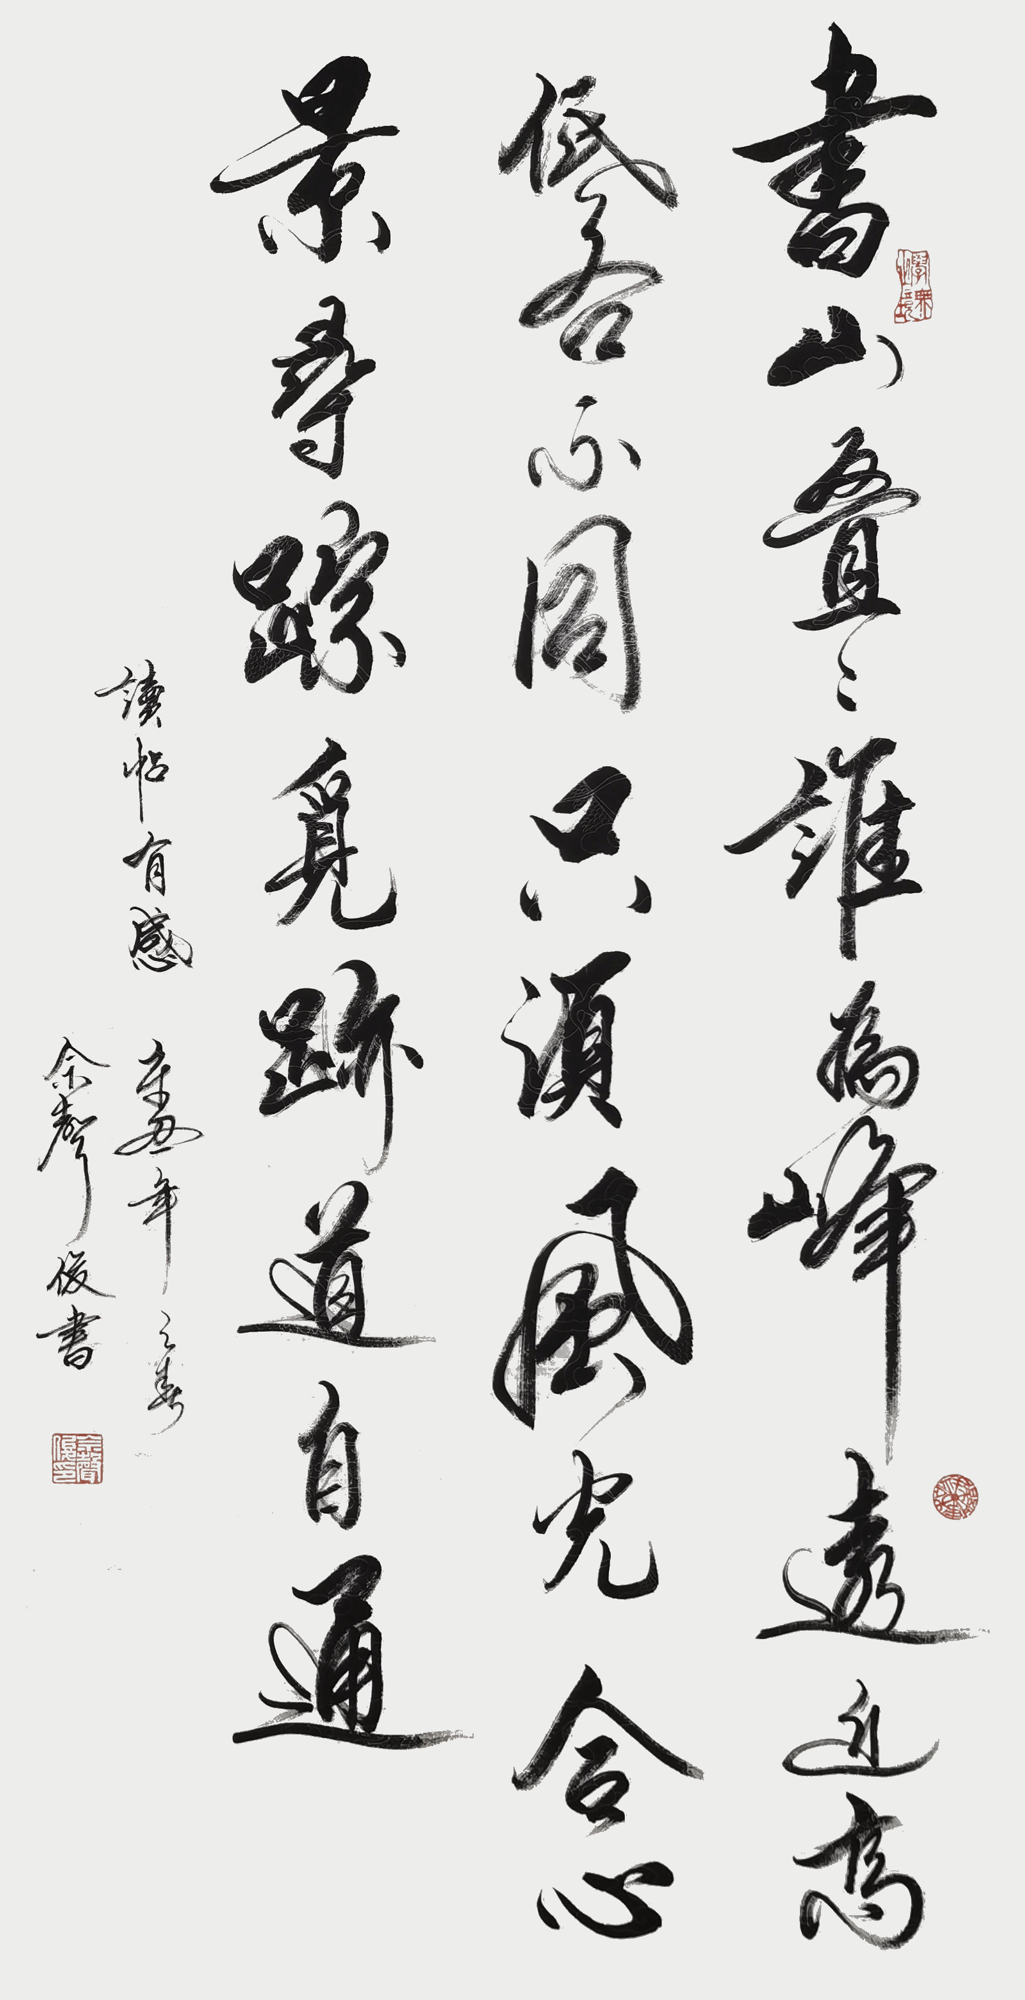 書山叠〻誰為峰遠近高
低各不同只須風光合心
景尋踪覓跡道自通
讀帖有感 辛丑年之春
余聲俊書